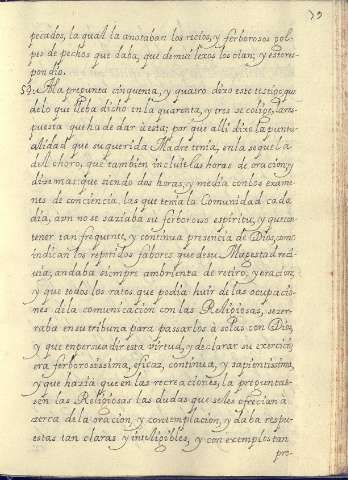 39
pecados, la qual la anotaban los recios, y ferborosos gol-
pes de pechos que daba, que de mui lexos los oian; y esto res-
pondio.
54. A la pregunta cinquenta, y quatro dixo este testigo, que
de lo que lleba dicho en la quarenta, y tres se colige, la res-
puesta que ha de dar à esta; por que alli dixo la puntu-
alidad que su querida Madre tenia, en la sequela
del choro, que tambien incluie las horas de oracion; y
dixe mas: que siendo dos horas, y media con los exame-
nes de conciencia, las que tenia la Comunidad cada
dia, aun no se saziaba su ferboroso espiritu, y que con
tener tan frequente, y continua presencia de Dios, como
indican los repetidos fabores que de su Magestad reci-
via, andaba siempre ambrienta de retiro, y oracion;
y que todos los ratos que podia huir de las ocupacio-
nes de la comunicación con las Religiosas, se zer-
raba en su tribuna para passarlos à solas con Dios,
y que en persuadir esta virtud, y declarar su exercicio
era ferborosissima, eficaz, continua, y sapientissima,
y que hazia que en las recreaciones, la preguntas-
sen las Religiosas las dudas que se les ofrecian à
zerca de la oracion, y contemplacion, y daba respu-
estas tan claras y inteligibles, y con exemplos tan
pro-